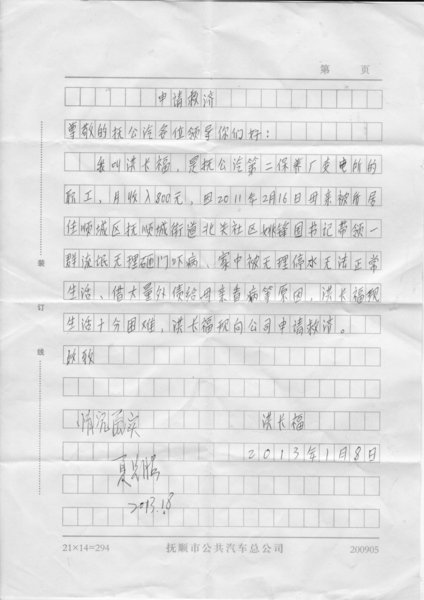 第 页
申请救济
尊敬的抚公汽各位领导你们好：
我叫洪长福，是抚公汽第二保养厂变电所的
职工、月收入800元，因2011年2月16日母亲被所居
住顺城区抚顺城街道北关社区姚锦国书记带领一
群流氓无理砸门吓病、家中被无理停水无法正常
生活、借大量外债给母亲看病等原因，洪长福现
生活十分困难，洪长福现向公司申请救济。
此致
情况属实
洪长福
2013年1月8日
2013.1.8
装 订 线
21×14=294 抚顺市公共汽车总公司 200905